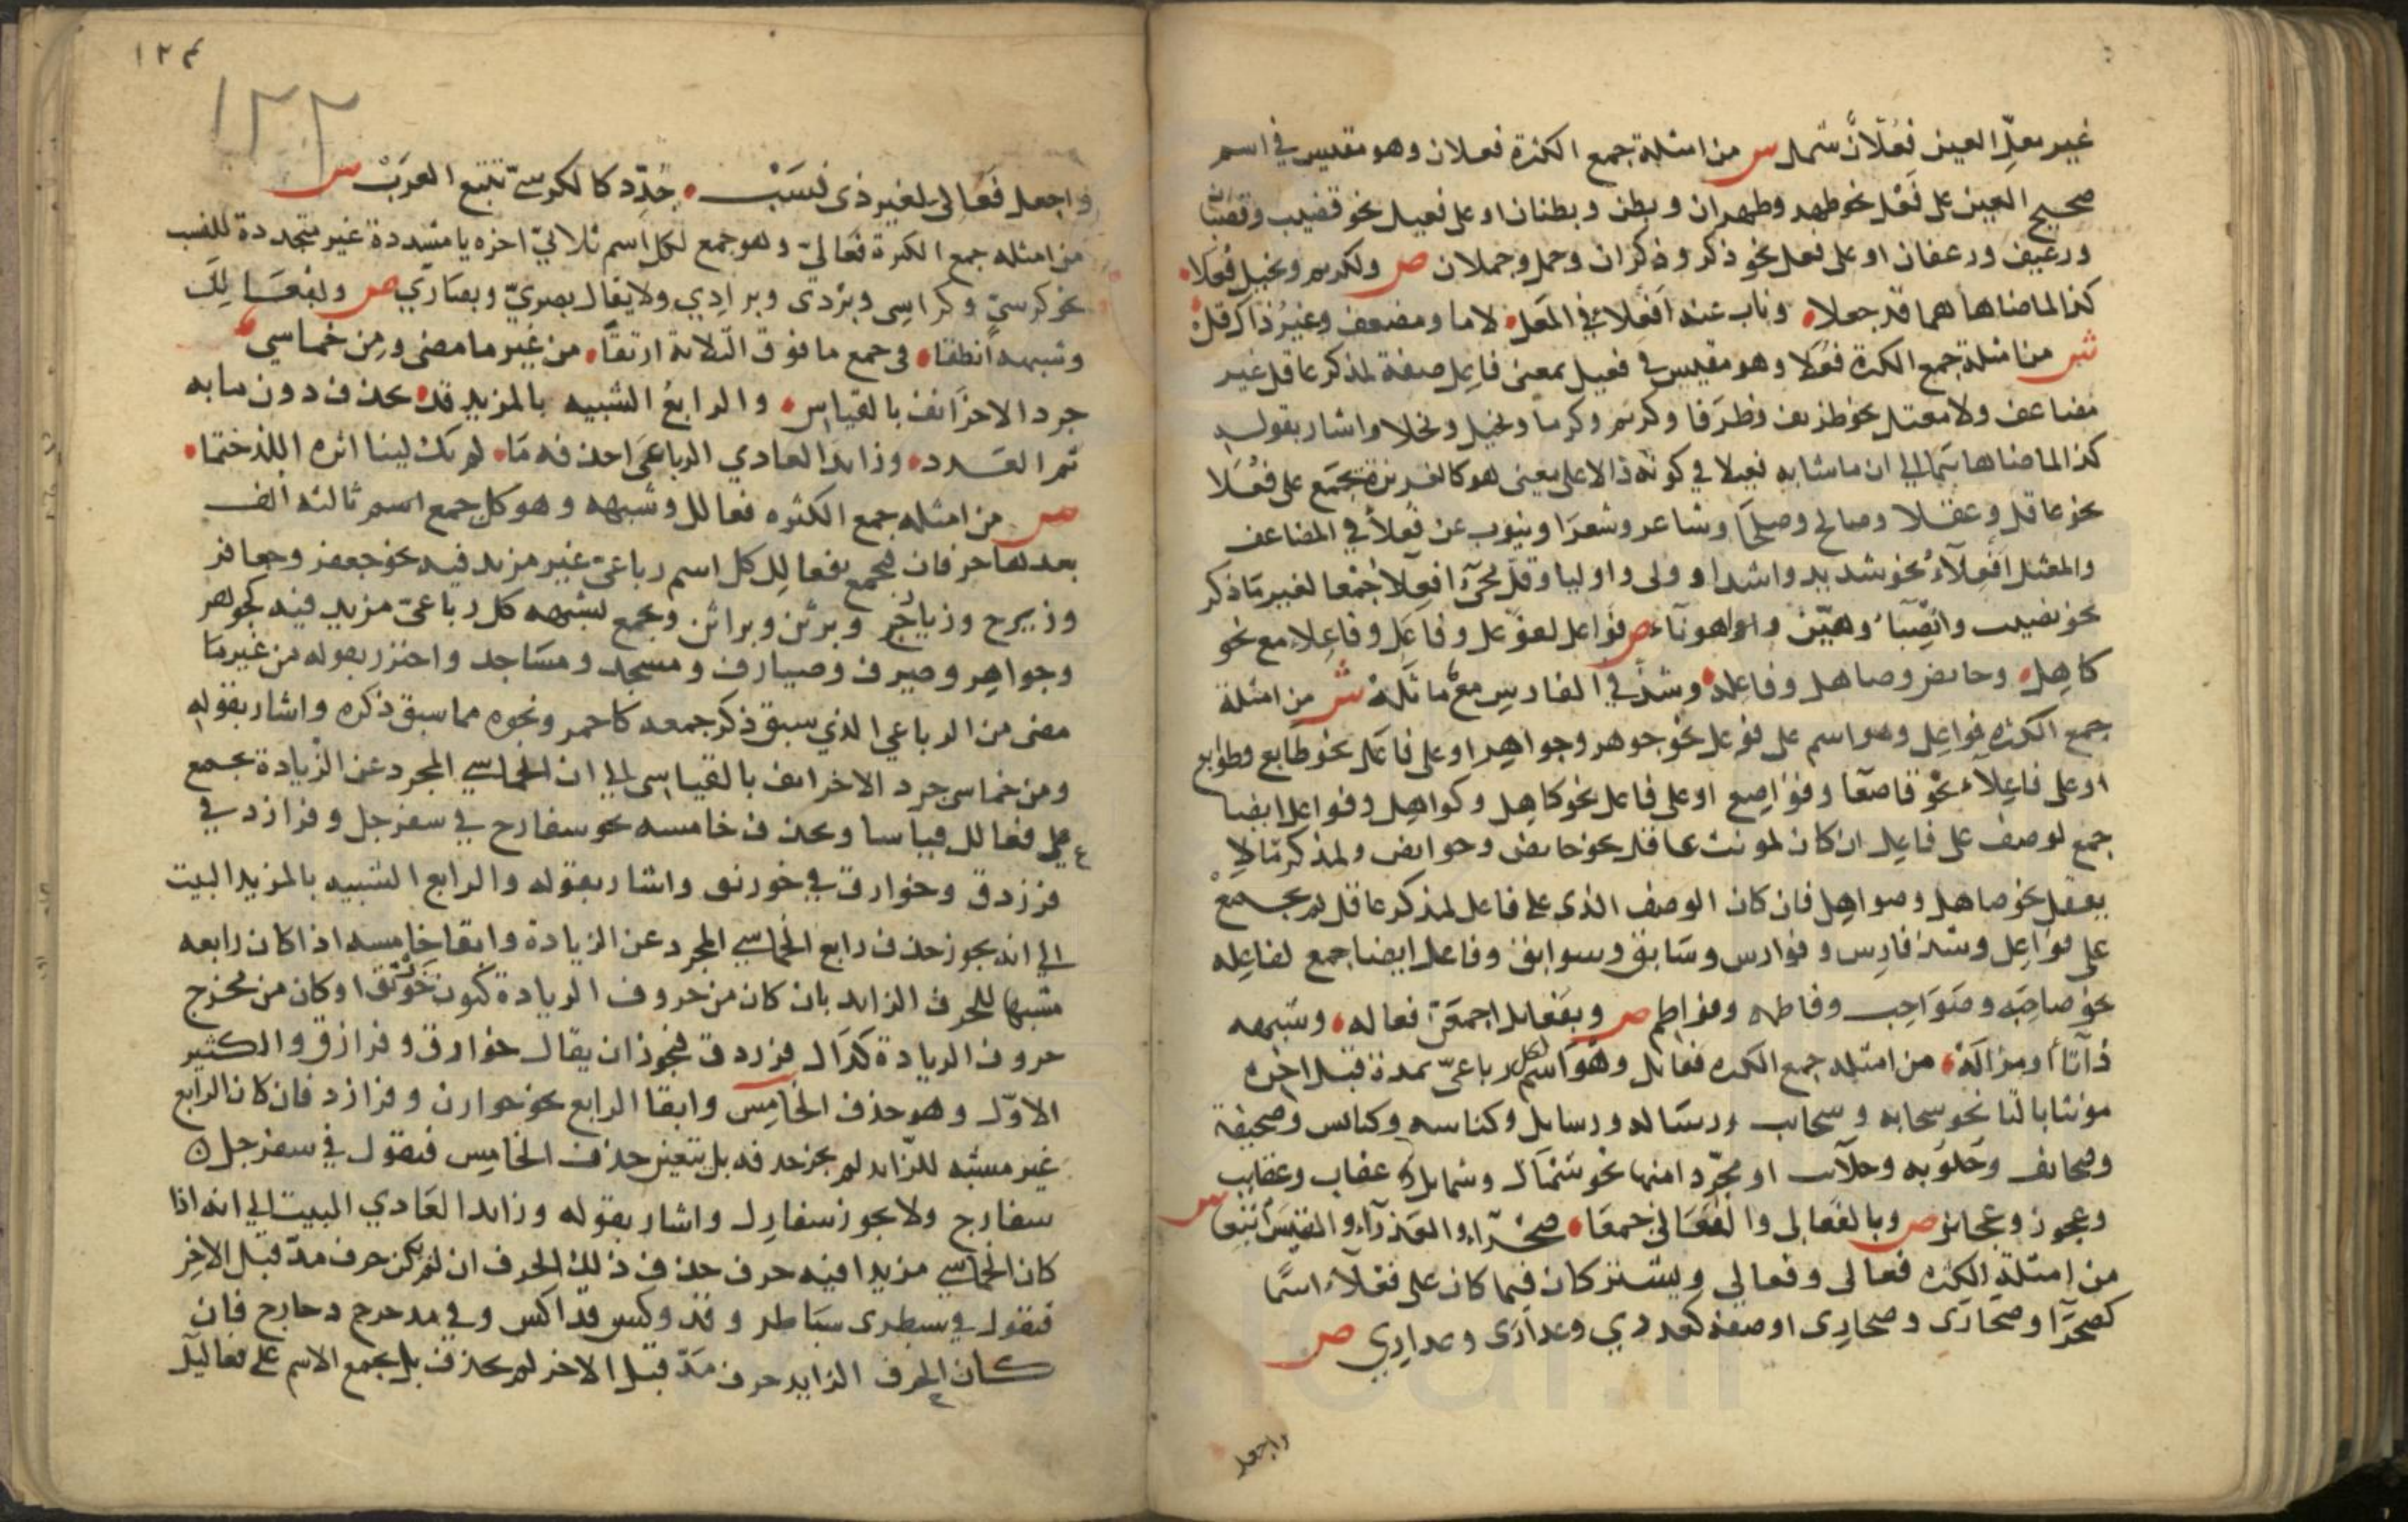 غير معلّ العين فُعْلَانٌ شمل س من امثلة جمع الكثرة فعلان وهو مقيس في اسم
صحيح العين على فَعْل نحو ظهر وظهران وبطن وبطنان او على فعيل نحو قضيب وقضبان
ورغيف ورغفان او على فعل نحو ذكر وذكران وحمل وحملان ص ولكريم وبخيل فُعَلا
كذا لما ضاهاهما قد جعلا وناب عنه اَفْعِلاءُ في المُعَل لاما ومضعف وغيرُ ذاك قل
ش من امثلة جمع الكثرة فُعَلا وهو مقيس في فعيل بمعنى فاعل صفة لمذكر عاقل غير
مضاعف ولا معتل نحو ظريف وظرفا وكريم وكرما وبخيل وبخلا واشار بقوله
كذا لما ضاهاهما الى ان ما شابه فعيلا في كونه دالا على معنى هو كالغريزة تجمع على فُعَلا
نحو عاقل وعقلا وصالح وصلحا وشاعر وشعرا وينوب عن فُعلأ في المضاعف
والمعتل اَفْعِلاءُ نحو شديد واشدا وولى واوليا وقل مجئ افعلا جمعا لغير ما ذكر
نحو نصيب وانصبا وهيّن واهونآء ص فواعل لفوعل وفاعَل وفاعِلاء مع نحو
كاهِل وحايض وصاهل وفاعله وشذ في الفارس مع ما ثَلَهْ ش من امثلة
جمع الكثره فواعِل وهو اسم على فوعل نحو جوهر وجواهر او على فاعَل نحو طابع وطوابع
او على فاعِلآء نحو قاصعا وقواصع او على فاعل نحو كاهل وكواهل وفواعل ايضا
جمع لوصف على فاعل ان كان لمونث عاقل نحو حايض وحوايض ولمذكر ما لا
يعقل نحو صاهل وصواهل فان كان الوصف الذى على فاعل لمذكر عاقل لم يجمع
على فواعل وشذ فارس وفوارس وسابق وسوابق وفاعل ايضا جمع لفاعله
نحو صاحبه وصواحب وفاطمه وفواطم ص وبفعايل اجمعن فعاله وشبهه
ذا تآءٍ او مزاله من امثله جمع الكثره فعايل وهو لكل اسم رباعيّ بمدة قبل اخره
مونثا بالتا نحو سحابه وسحايب ورساله ورسايل وكناسه وكنايس وصحيفة
وصحايف وحلوبه وحلايب او مجردا منها نحو شمال وشمايل وعقاب وعقايب
وعجوز وعجايز ص وبالفعالى والفعالى جمعا صحرآء والعذرآء والقيس اتبعا س
من امثلة الكثره فعالى وفعالي ويشتركان فيما كان على فعلآء اسما
كصحرآ وصحارَى وصحارِى او صفة كعذرى وعدارَى وعدارِي ص
واجعل
١٢٤
١٢٢
واجعل فَعَالىّ لغير ذى نسَبْ جُدِّد كالكرسىّ تتبع العَرَبْ س
من امثله جمع الكثرة فَعَالىّ وهو جمع لكل اسم ثلاثيّ اخره يا مشددة غير متجددة للنسب
نحو كرسيّ وكراسى وبردى وبرادي ولا يقال بصريّ وبصاريّ ص وبفعالِلَ
وشبهه انطقا في جمع ما فوق الثلاثة ارتقا من غير ما مضى ومن خماسي
جرد الاخر انف بالقياس والرابعُ الشبيه بالمزيد قد يحذف دون ما به
تم العدد وزايد العادي الرباعى احذفه ما لم يك لينا اثره اللذ ختما
س من امثله جمع الكثره فعالل وشبهه وهو كل جمع اسم ثالثه الف
بعدها حرفان فجمع بفعالِل كل اسم رباعيّ غير مزيد فيه نحو جعفر وجعافر
وزبرج وزبارج وبرثن وبراثن ويجمع بشبهه كل رباعيّ مزيد فيه كجوهر
وجواهر وصيرف وصيارف ومسجد ومساجد واحترز بقوله من غير ما
مضى من الرباعي الذي سبق ذكر جمعه كاحمر ونحوه مما سبق ذكره واشار بقوله
ومن خماسى جرد الاخر انف بالقياس الى ان الخماسي المجرد عن الزيادة يجمع
على فعالل قياسا ويحذف خامسه نحو سفارج في سفرجل وفرازد في
فرزدق وخوارق في خورنق واشار بقوله والرابع الشبيه بالمزيد البيت
الى انه يجوز حذف رابع الخماسي المجرد عن الزيادة وابقا خامسه اذا كان رابعه
مشبها للحرف الزايد بان كان من حروف الزيادة كنون خورنق او كان من مخرج
حروف الزيادة كدال فرزدق فيجوز ان يقال خوارق وفرازق والكثير
الاوّل وهو حذف الخامِس وابقا الرابع نحو خوارن وفرازد فان كان الرابع
غير مشبه للزايد لم يجز حذفه بل يتعين حذف الخامِس فتقول في سفرجل
سفارج ولا يجوز سفارِل واشار بقوله وزايد العادي البيت الى انه اذا
كان الخماسي مزيدا فيه حرف حذف ذلك الحرف ان لم يكن حرف مدّ قبل الاخِر
فتقول في سبطرى سباطر وفدوكس فداكس وفي مدحرج دحارج فان
كان الحرف الزايد حرف مَدّ قبل الاخر لم يحذف بل يجمع الاسم على فعاليل